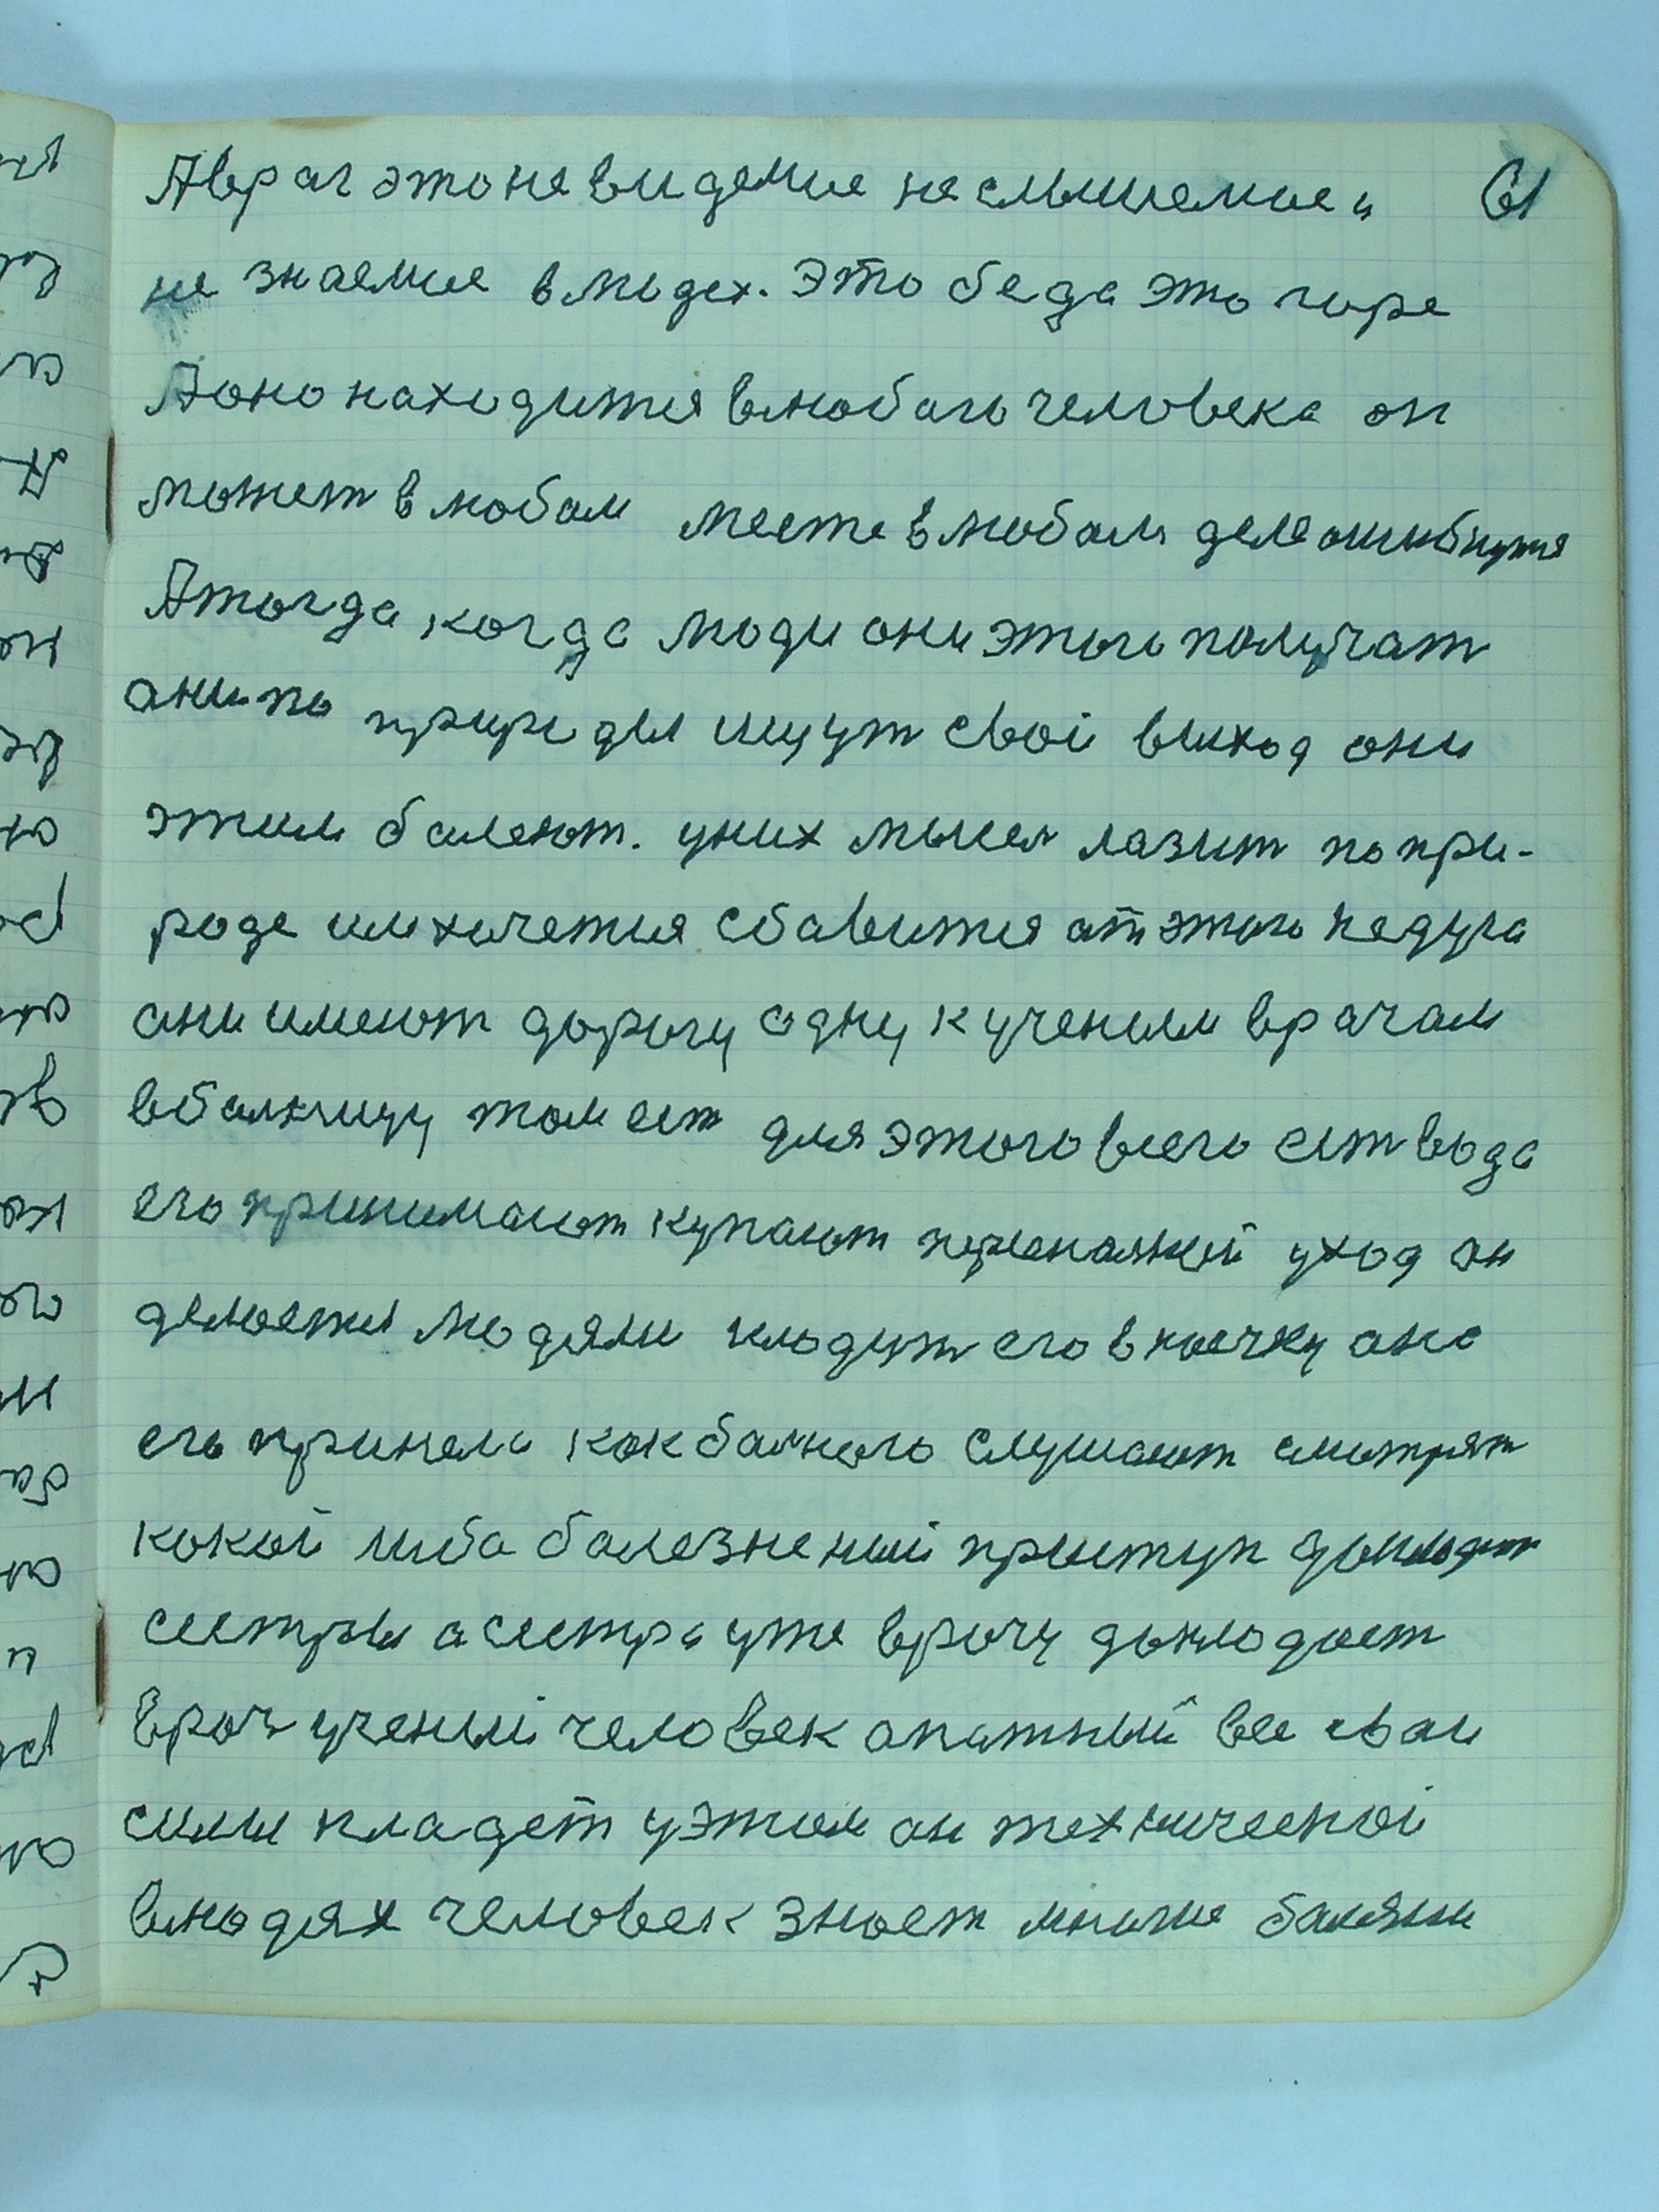 Авраг это не видемие не слышемие и 61
не знаемие в людех. Это беда это горе
А оно находится в любого человека он
может в любом месте в любом деле ошибнутся
А тогда когда люди они этого получат
они по природы ищут свой выход они
этим болеют. у них мысел лазит по при-
роде им хочется сбавится от этого недуга
они имеют дорогу одну к ученим врачам
в болницу там ест для этого всего ест вода
его принимают купают нормалний уход он
делаетсы людями кладут его в коечку она
его принела как болного слушают смотрят
какой либа болезнений приступ докладют
сестры а сестра уже врачу докладает
врач учений человек опытный все свои
силы кладет у этом он технической
в людях человек знает многие болязни